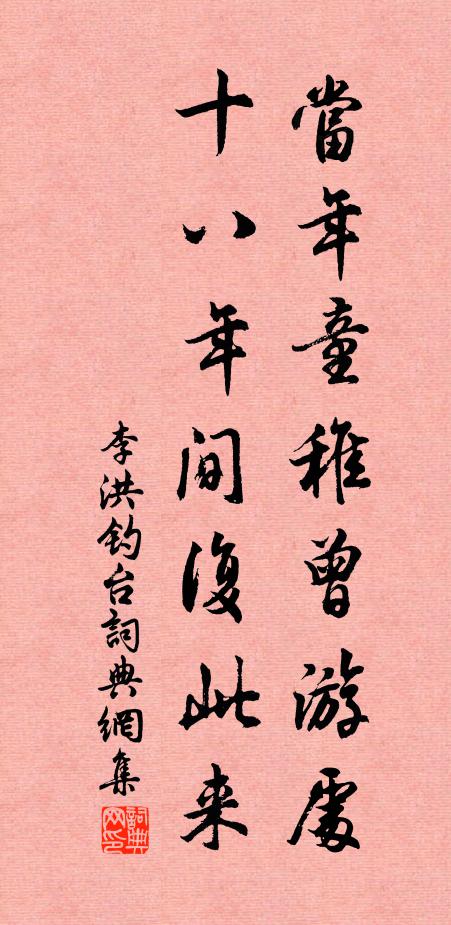 當年童稚曾游處
十八年間復此来
李洪钓台詞典網集
詞典网印